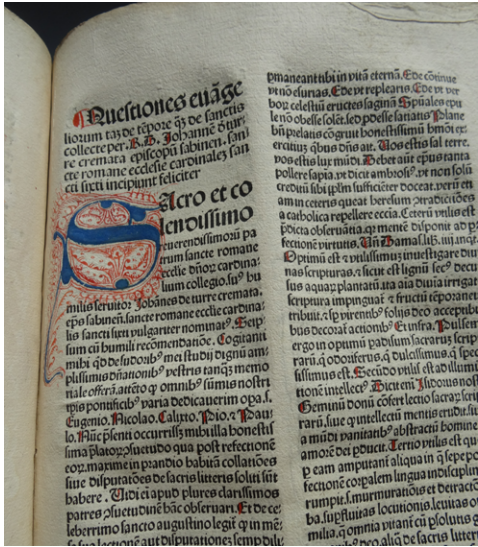 Questiones euāge
liorum tā de tēpore q̄ʒ de sanctis
collecte per. R. D. Johannē d̓ tur
re cremata episcopū sabineñ. sanc
te romane ecclesie cardinalez san
cti sixti incipiunt feliciter
Sacro et co
lendissimo
reuerendissimoꝝ pa
trum sancte romane
ecclesie dñoꝝ cardina
lium collegio. suꝰ hu
milis seruitor Johānes de turre cremata.
ep̄s sabineñ. sancte romane ecclesie cardina
lis sancti sixti vulgariter nominatꝰ. Seip
sum cū humili recomendatiōe. Cogitanti
mihi qd̓ de sudoribꝰ mei studij dignū am
plissimis dñationibꝰ vestris tanqʒ memo
riale offerā. aiteto ꝙ omnibꝰ sūmis nostri
tp̄is pontificibꝰ varia dedicauerim opa. s.
Eugenio. Nicolao. Calixto. Pio. ⁊ Pau
lo. Nūc p̄senti occurrissʒ mihi illa honestis
sima p̄latoꝝ ꝯsuetudo qua post refectionē
eoꝝ. maxime in prandio habitā collatiōes
siue disputatiōes de sacris litteris soliti sūt
habere. Vidi ei apud plures clarissimos
patres ꝯsuetudinē hāc obseruari. Et de ce
leberrimo sancto augustino legit̄ ꝙ in mē
pmaneant tibi in vitā eternā. Ede cōtinue
vt nō esurias. Ede vt replearis. Ede vt ver
boꝝ celestiū eructes saginā. Spūales epu
le nō obesse solēt. sed podesse satiatis. Plane
hñ prelatis cōgruit honestissimū hmōi ex
ercitiuʒ qbus dñs ait. Uos estis sal terre.
vos estis lux mūdi. Debet aūt ep̄us tanta
pollere sapia. vt dicit ambrosꝰ. vt non solū
creditū sibi pplm sufficiēter doceat. verū eti
am in ceteris queat heresum ꝯtradictiōes
a catholica repellere eccīa. Ceterū vtilis est
p̄dicta obseruatia. ꝙ mentē disponit ad p̱
fectionē virtutis. Un̄ Damasꝰ. li. iiij. inqt.
Optimū est ⁊ vtilissimuʒ inuestigare diui
nas scripturas. ⁊ sicut est lignū secꝰ decur
sus aquaꝝ plantatū. ita aīa diuīa irrigat̄
scriptura impinguat̄ ⁊ fructū tēporaneū
tribuit. ⁊ sp virentibꝰ folijs deo acceptibili
bus decorat̄ actionibꝰ. Et infra. Pulsem
ergo in optimū padisum sacraruʒ scriptu
raꝝ. q̄ odoriferus. q̄ dulcissimus. q̄ specio
sissimus est. Secūdo vtilis est ad illumina
tionē intellectꝰ. Dicit em̄. Isidorus nost
Geminū donū cōfert lectio sacraꝝ scriptu
raꝝ. siue q̄ intellectū mentis erudit. siue
a mūdi vanitatibꝰ abstractū hominē
amorē dei pducit. Tertio vtilis est quia
p eam amputant̄ aliqua in q̄ sepe post
fectionē corpalem lingua indisciplinata
rumpit. s. murmuratiōis et detractiōis
ba. supfluitas locutionis. leuitas
milia. q̄ omnia vitant̄ cū psolutus